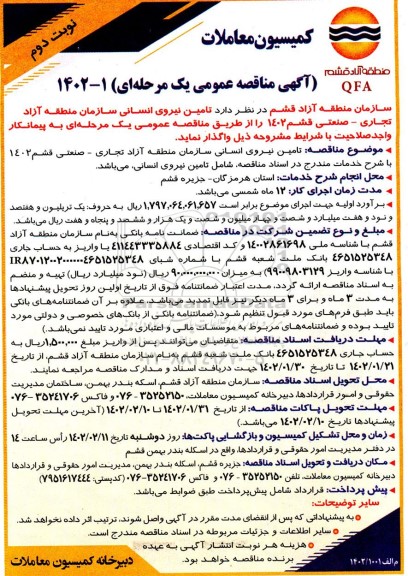 نوبت دوم
کمیسیون معاملات
منطقه آزاد قشم
QFA
(آگهی مناقصه عمومی یک مرحله‌ای) ۱-۱۴۰۲
سازمان منطقه آزاد قشم در نظر دارد تامین نیروی انسانی سازمان منطقه آزاد
تجاری - صنعتی قشم ۱۴۰۲ را از طریق مناقصه عمومی یک مرحله‌ای به پیمانکار
واجد صلاحیت با شرایط مشروحه ذیل واگذار نماید.
موضوع مناقصه: تامین نیروی انسانی سازمان منطقه آزاد تجاری - صنعتی قشم ۱۴۰۲
با شرح خدمات مندرج در اسناد مناقصه، شامل تامین نیروی انسانی، می‌باشد.
محل انجام شرح خدمات: استان هرمزگان- جزیره قشم
مدت زمان اجرای کار: ۱۲ ماه شمسی می‌باشد.
برآورد اولیه جهت اجرای موضوع برابر است ۱,۷۹۷,۰۶۴,۰۶۱,۶۵۷ ریال به حروف: یک تریلیون و هفتصد
و نود و هفت میلیارد و شصت و چهار میلیون و شصت و یک هزار و ششصد و پنجاه و هفت ریال می‌باشد.
مبلغ و نوع تضمین شرکت در مناقصه: ضمانت نامه بانکی به‌نام سازمان منطقه آزاد
قشم با شناسه ملی ۱۴۰۰۲۸۶۱۶۹۸ و کد اقتصادی ۴۱۱۴۴۳۳۳۵۸۸۴ یا واریز به حساب جاری
۴۶۵۱۵۲۵۳۴۸ بانک ملت شعبه قشم با شماره شبای
با شناسه واریز ۹۹۰۰۹۸۰۳۱۲۹ به میزان ۹۰,۰۰۰,۰۰۰,۰۰۰ ریال (نود میلیارد ریال) تهیه و منضم
به اسناد مناقصه ارائه گردد. مدت اعتبار ضمانتنامه فوق از تاریخ اولین روز تحویل پیشنهادها
به مدت ۳ ماه و برای ۳ ماه دیگر نیز قابل تمدید می‌باشد. علاوه بر آن ضمانتنامه‌های بانکی
باید طبق فرم‌های مورد قبول تنظیم شود. (ضمانتنامه بانکی از بانک‌های خصوصی و دولتی مورد
تایید بوده و ضمانتنامه‌های مربوط به موسسات مالی و اعتباری مورد تایید نمی‌باشد.)
مهلت دریافت اسناد مناقصه: متقاضیان می‌توانند پس از واریز مبلغ ۱,۵۰۰,۰۰۰ ریال به
حساب جاری ۴۶۵۱۵۲۵۳۴۸ بانک ملت شعبه قشم به‌نام سازمان منطقه آزاد قشم، از تاریخ
۱۴۰۲/۰۱/۲۱ تا ۱۴۰۲/۰۱/۳۰ جهت دریافت اسناد و مدارک مناقصه مراجعه نمایند.
محل تحویل اسناد مناقصه: سازمان منطقه آزاد قشم، اسکله بندر بهمن، ساختمان مدیریت
حقوقی و امور قراردادها، دبیرخانه کمیسیون معاملات، ۳۵۲۵۲۱۵۰ - ۰۷۶ و فاکس ۳۵۲۴۱۷۰۶-۰۷۶
مهلت تحویل پاکات مناقصه: از تاریخ ۱۴۰۲/۰۱/۳۱ تا ۱۴۰۲/۰۲/۱۰ (آخرین مهلت تحویل
پیشنهادها تاریخ ۱۴۰۲/۰۲/۱۰ می‌باشد.)
زمان و محل تشکیل کمیسیون و بازگشایی پاکت‌ها: روز دوشنبه تاریخ ۱۴۰۲/۰۲/۱۱ رأس ساعت ۱۴
در دفتر مدیریت امور حقوقی و قراردادها، واقع در اسکله بندر بهمن قشم
مکان دریافت و تحویل اسناد مناقصه: جزیره قشم، اسکله بندر بهمن، مدیریت امور حقوقی و قراردادها
دبیرخانه کمیسیون معاملات، تلفن ۳۵۲۵۲۱۵۰ - ۰۷۶ و فاکس ۳۵۲۴۱۷۰۶-۰۷۶ (کدپستی: ۷۹۵۱۶۱۷۴۴۴)
پیش پرداخت: قرارداد شامل پیش‌پرداخت طبق ضوابط می‌باشد.
سایر توضیحات:
به پیشنهاداتی که پس از انقضای مدت مقرر در آگهی واصل شوند، ترتیب اثر داده نخواهد شد.
سایر اطلاعات و جزئیات مربوطه در اسناد مناقصه مندرج است.
هزینه هر نوبت انتشار آگهی به عهده
برنده مناقصه خواهد بود.
دبیرخانه کمیسیون معاملات
م الف ۱۴۰۲/۱۰۰۱